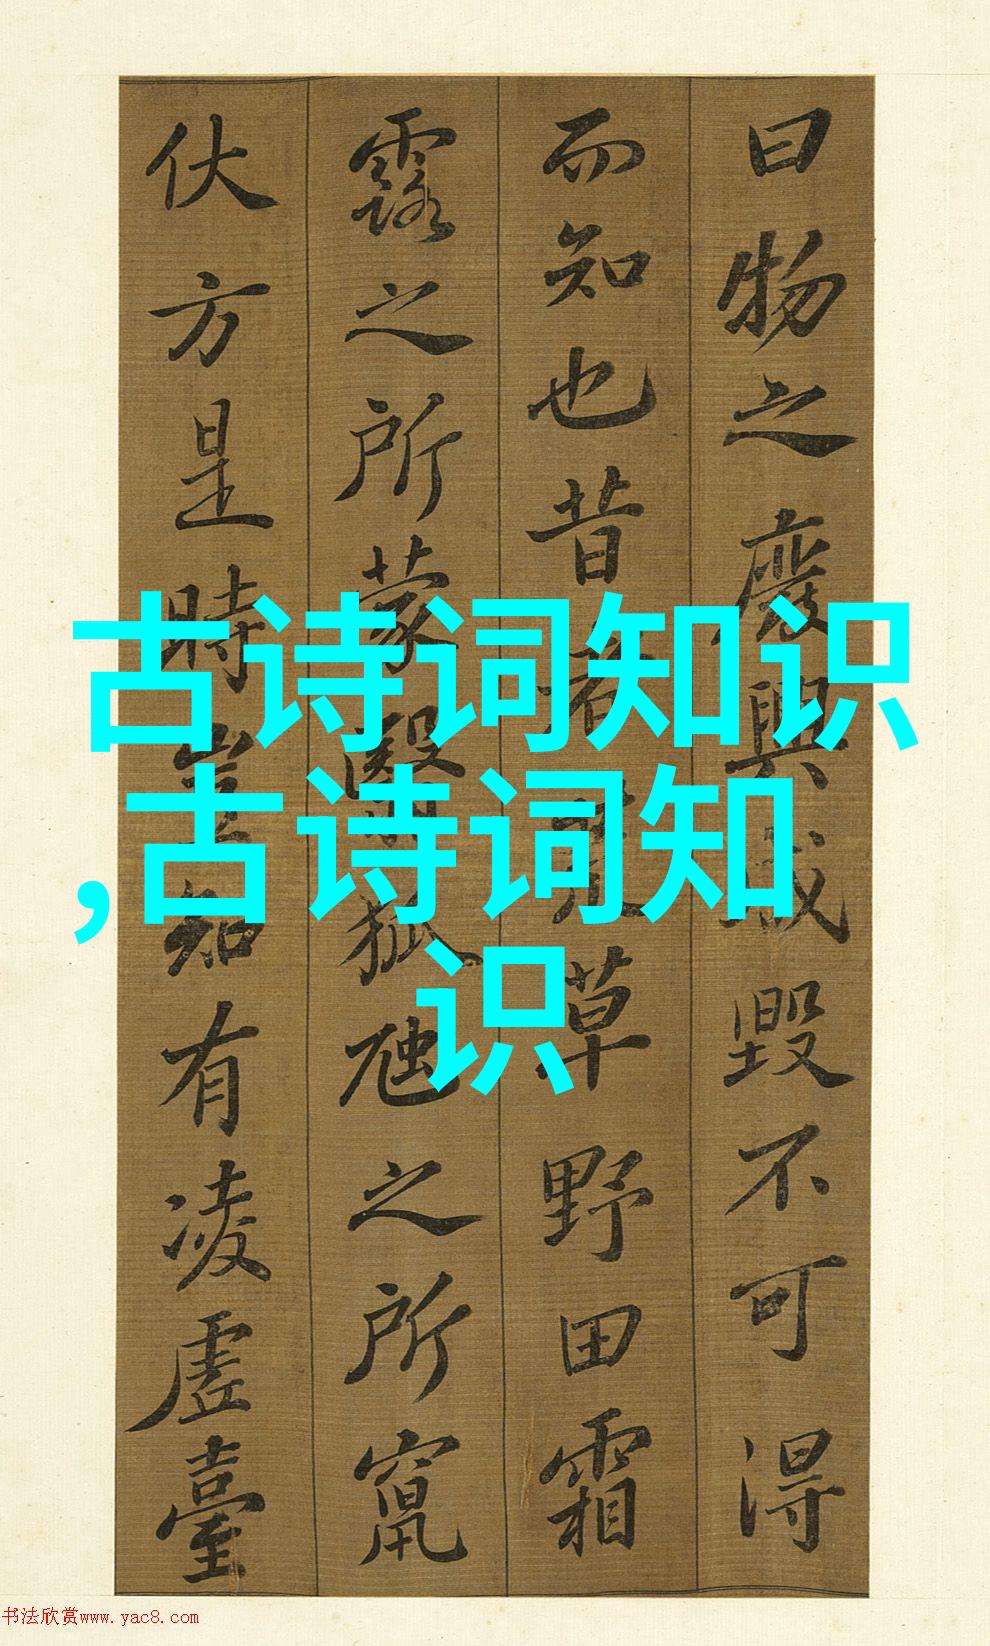 曰物之廢興成毀不可得
而知也昔者荒草野田霜
露之所蒙翳狐虺之所竄
伏方是時豈知有凌虛臺
古诗词知识
,古诗词知
识
书法欣赏www.yac8.com